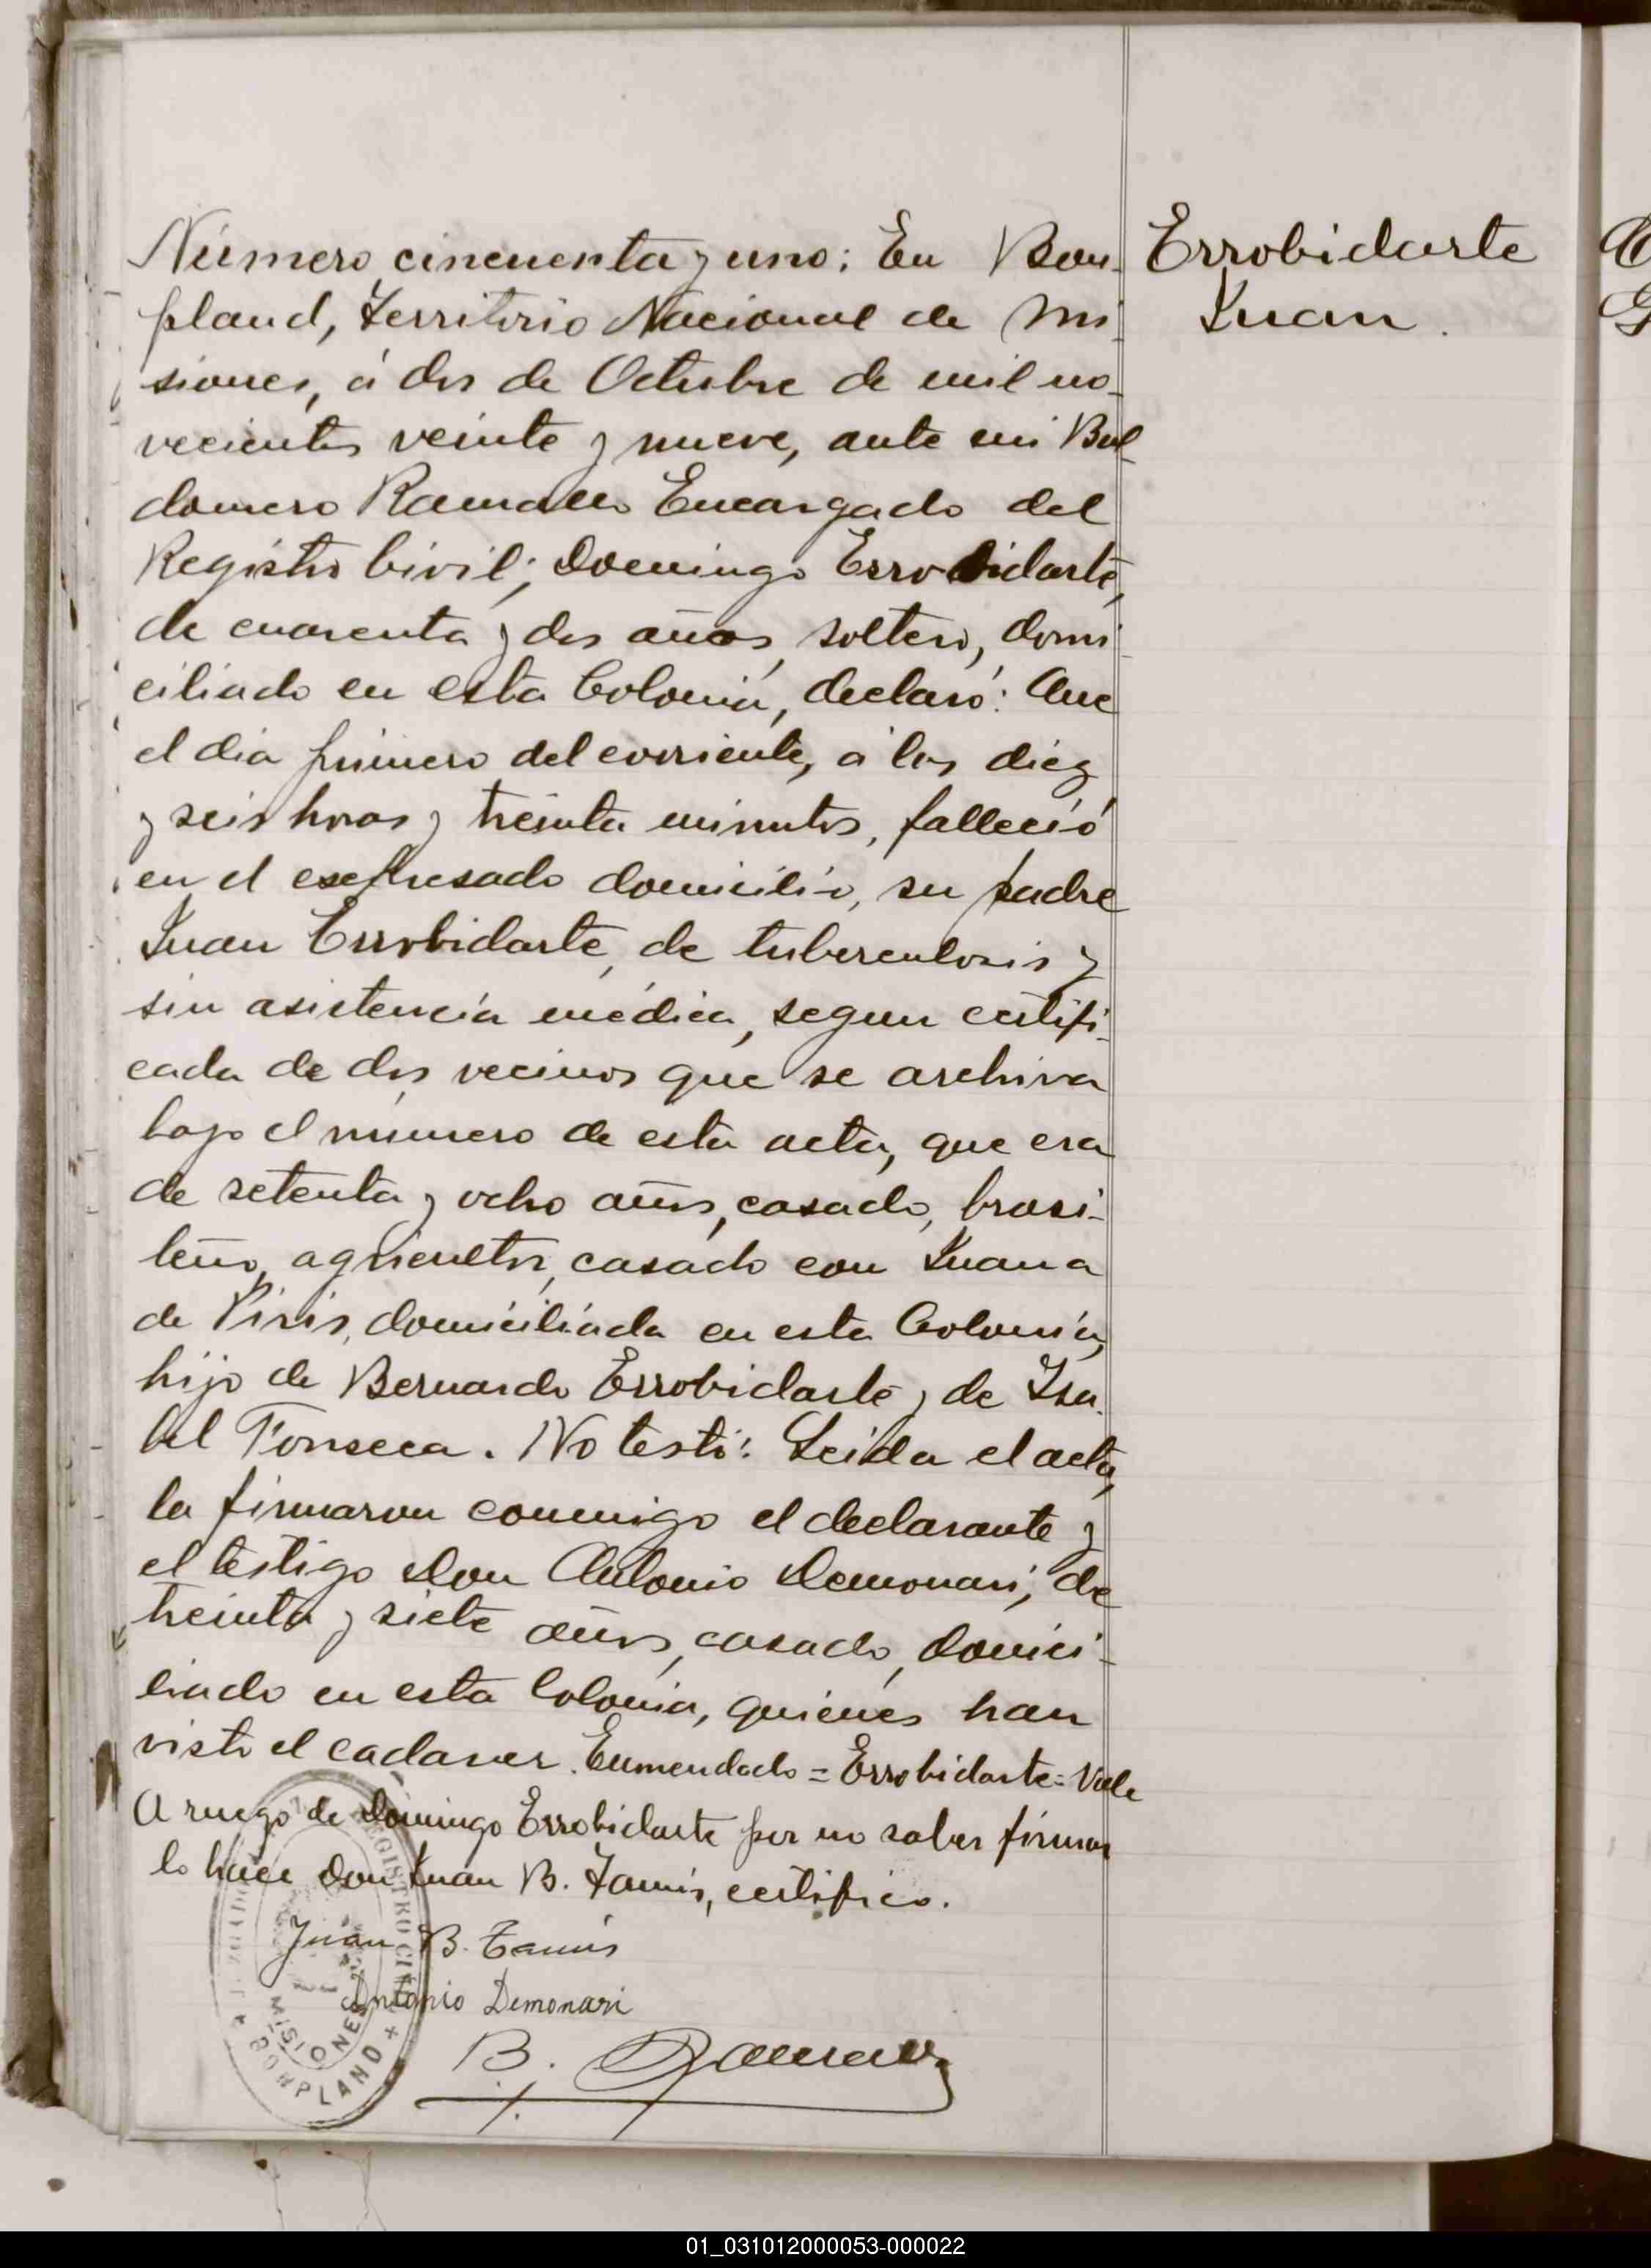 Errobidarte
Juan.
Número cincuenta y uno: En Bon-
pland, Territorio Nacional de Mi-
siones, á dos de Octubre de mil no-
vecientos veinte y nueve, ante mi Bal-
domero Ramallo Encargado del
Registro Civil; Domingo Errobidarte,
de cuarenta y dos años, soltero, domi-
ciliado en esta Colonia, declaró: Que
el dia primero del corriente, á las diez
y seis horas y treinta minutos, falleció
en el expresado domicilio, su padre
Juan Errobidarte, de tuberculosis y
sin asistencia médica, segun certifi-
cada de dos vecinos que se archiva
bajo el número de esta acta, que era
de setenta y ocho años, casado, brasi-
leño, agricultor, casado con Juana
de Piris, domiciliada en esta Colonia,
hijo de Bernardo Errobidarte y de Isa-
bel Fonseca. No testó: Leida el acta,
la firmaron conmigo el declarante y
el testigo Don Antonio Demonari, de
treinta y siete años, casado, domici-
liado en esta Colonia, quienes han
visto el cadaver. Enmendado = Errobidarte = Vale
A ruego de Domingo Errobidarte por no saber firmar
lo hace Don Juan B. , certifico.
Juan B.
Antonio Demonari
B. Ramallo
REGISTRO CIVIL
MISIONES
BONPLAND
01_031012000053-000022